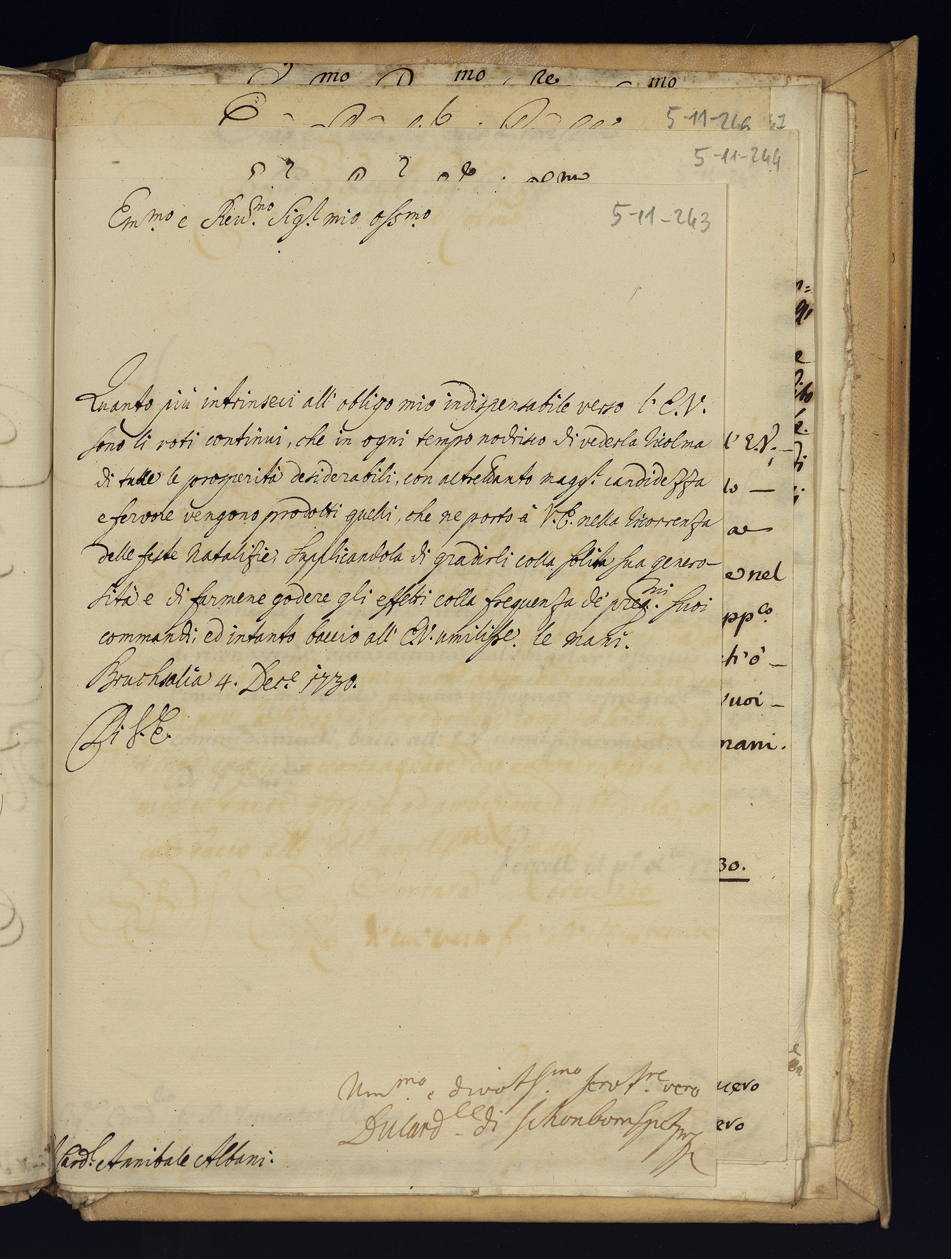 5-11-246
5-11-244
5-11-243
Em.mo e Reu.mo Sig.r mio oss.mo
Quanto più intrinseci all' obligo mio indispensabile verso l' E.V.
sono li voti continui, che in ogni tempo nodrisco di vederla ricolma
di tutte le prosperità desiderabili, con altretanto magg.r candidezza
e fervore vengono prodotti quelli, che ne porto à V.E. nella ricorrenza
delle feste Natalizie; supplicandola di gradirli colla solita sua genero-
sità e di farmene godere gli effetti colla frequenza de' preg.mi suoi
commandi; ed intanto baccio all' E.V. umilisse. le mani.
Bruchsalia 4. Dec.e 1730.
Di V.E.
Um.mo e divotss.imo serv.re vero
D card.le di Schonborn
Card.l Annibale Albani.
l' E.V.
e nel
pp.co
uoi
mani.
30.